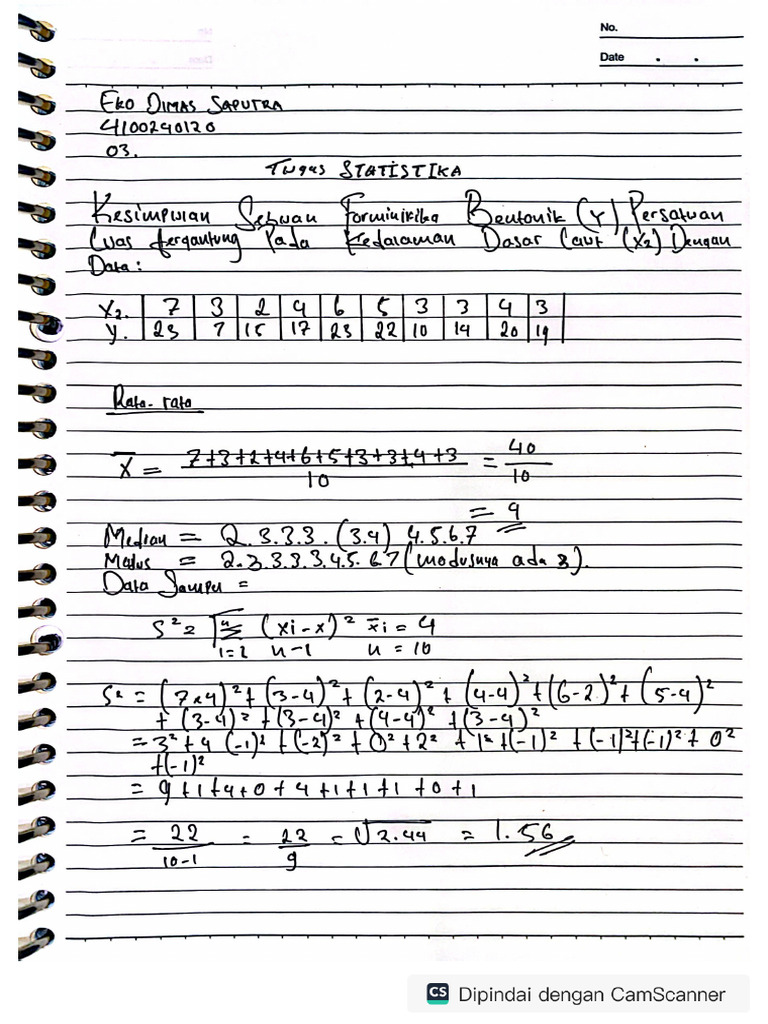 No.
Date . .
EKO DIMAS SAPUTRA
4100240120
03.
Tugas STATISTIKA
Kesimpulan Sebuah (Y) Persatuan
Luas tergantung Pada Kedalaman Dasar Laut (X2) Dengan
Data:
X2. 7 3 2 4 6 5 3 3 4 3
Y. 23 7 15 17 23 22 10 14 20 19
Rata-rata
X̅ = 7+3+2+4+6+5+3+3+4+3 / 10 = 40 / 10
= 4
Median = 2.3.3.3.(3.4) 4.5.6.7
Modus = 2.3.3.3.3.4.5.6.7 (modusnya ada 3).
Data =
S² = √ n Σ i=1 (xi-x)² / n-1 x̅i = 4
n = 10
S² = (7-4)² + (3-4)² + (2-4)² + (4-4)² + (6-2)² + (5-4)²
+ (3-4)² + (3-4)² + (4-4)² + (3-4)²
= 3² + 4 (-1)² + (-2)² + 0² + 2² + 1² + (-1)² + (-1)² + (-1)² + 0²
+(-1)²
= 9+1+4+0+4+1+1+1+0+1
= 22 / 10-1 = 22 / 9 = √2.44 = 1.56
CS Dipindai dengan CamScanner